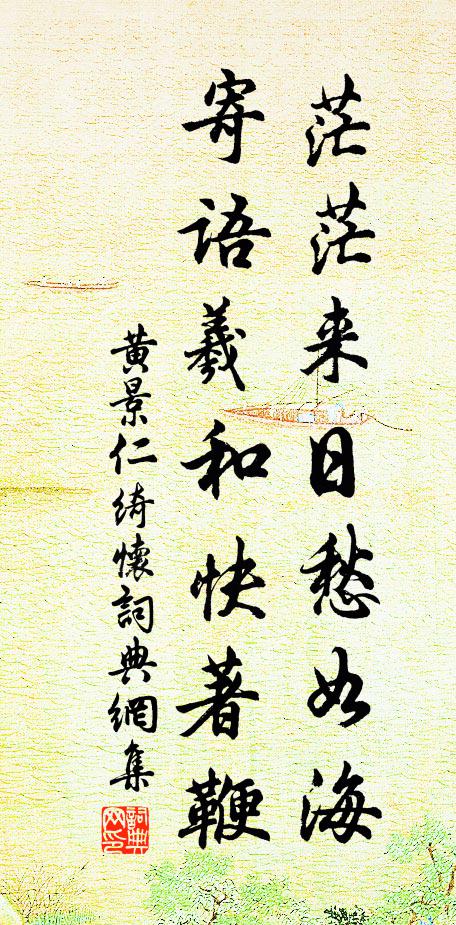 茫茫来日愁如海
寄语羲和快著鞭
黄景仁绮懷詞典網集
詞典网印